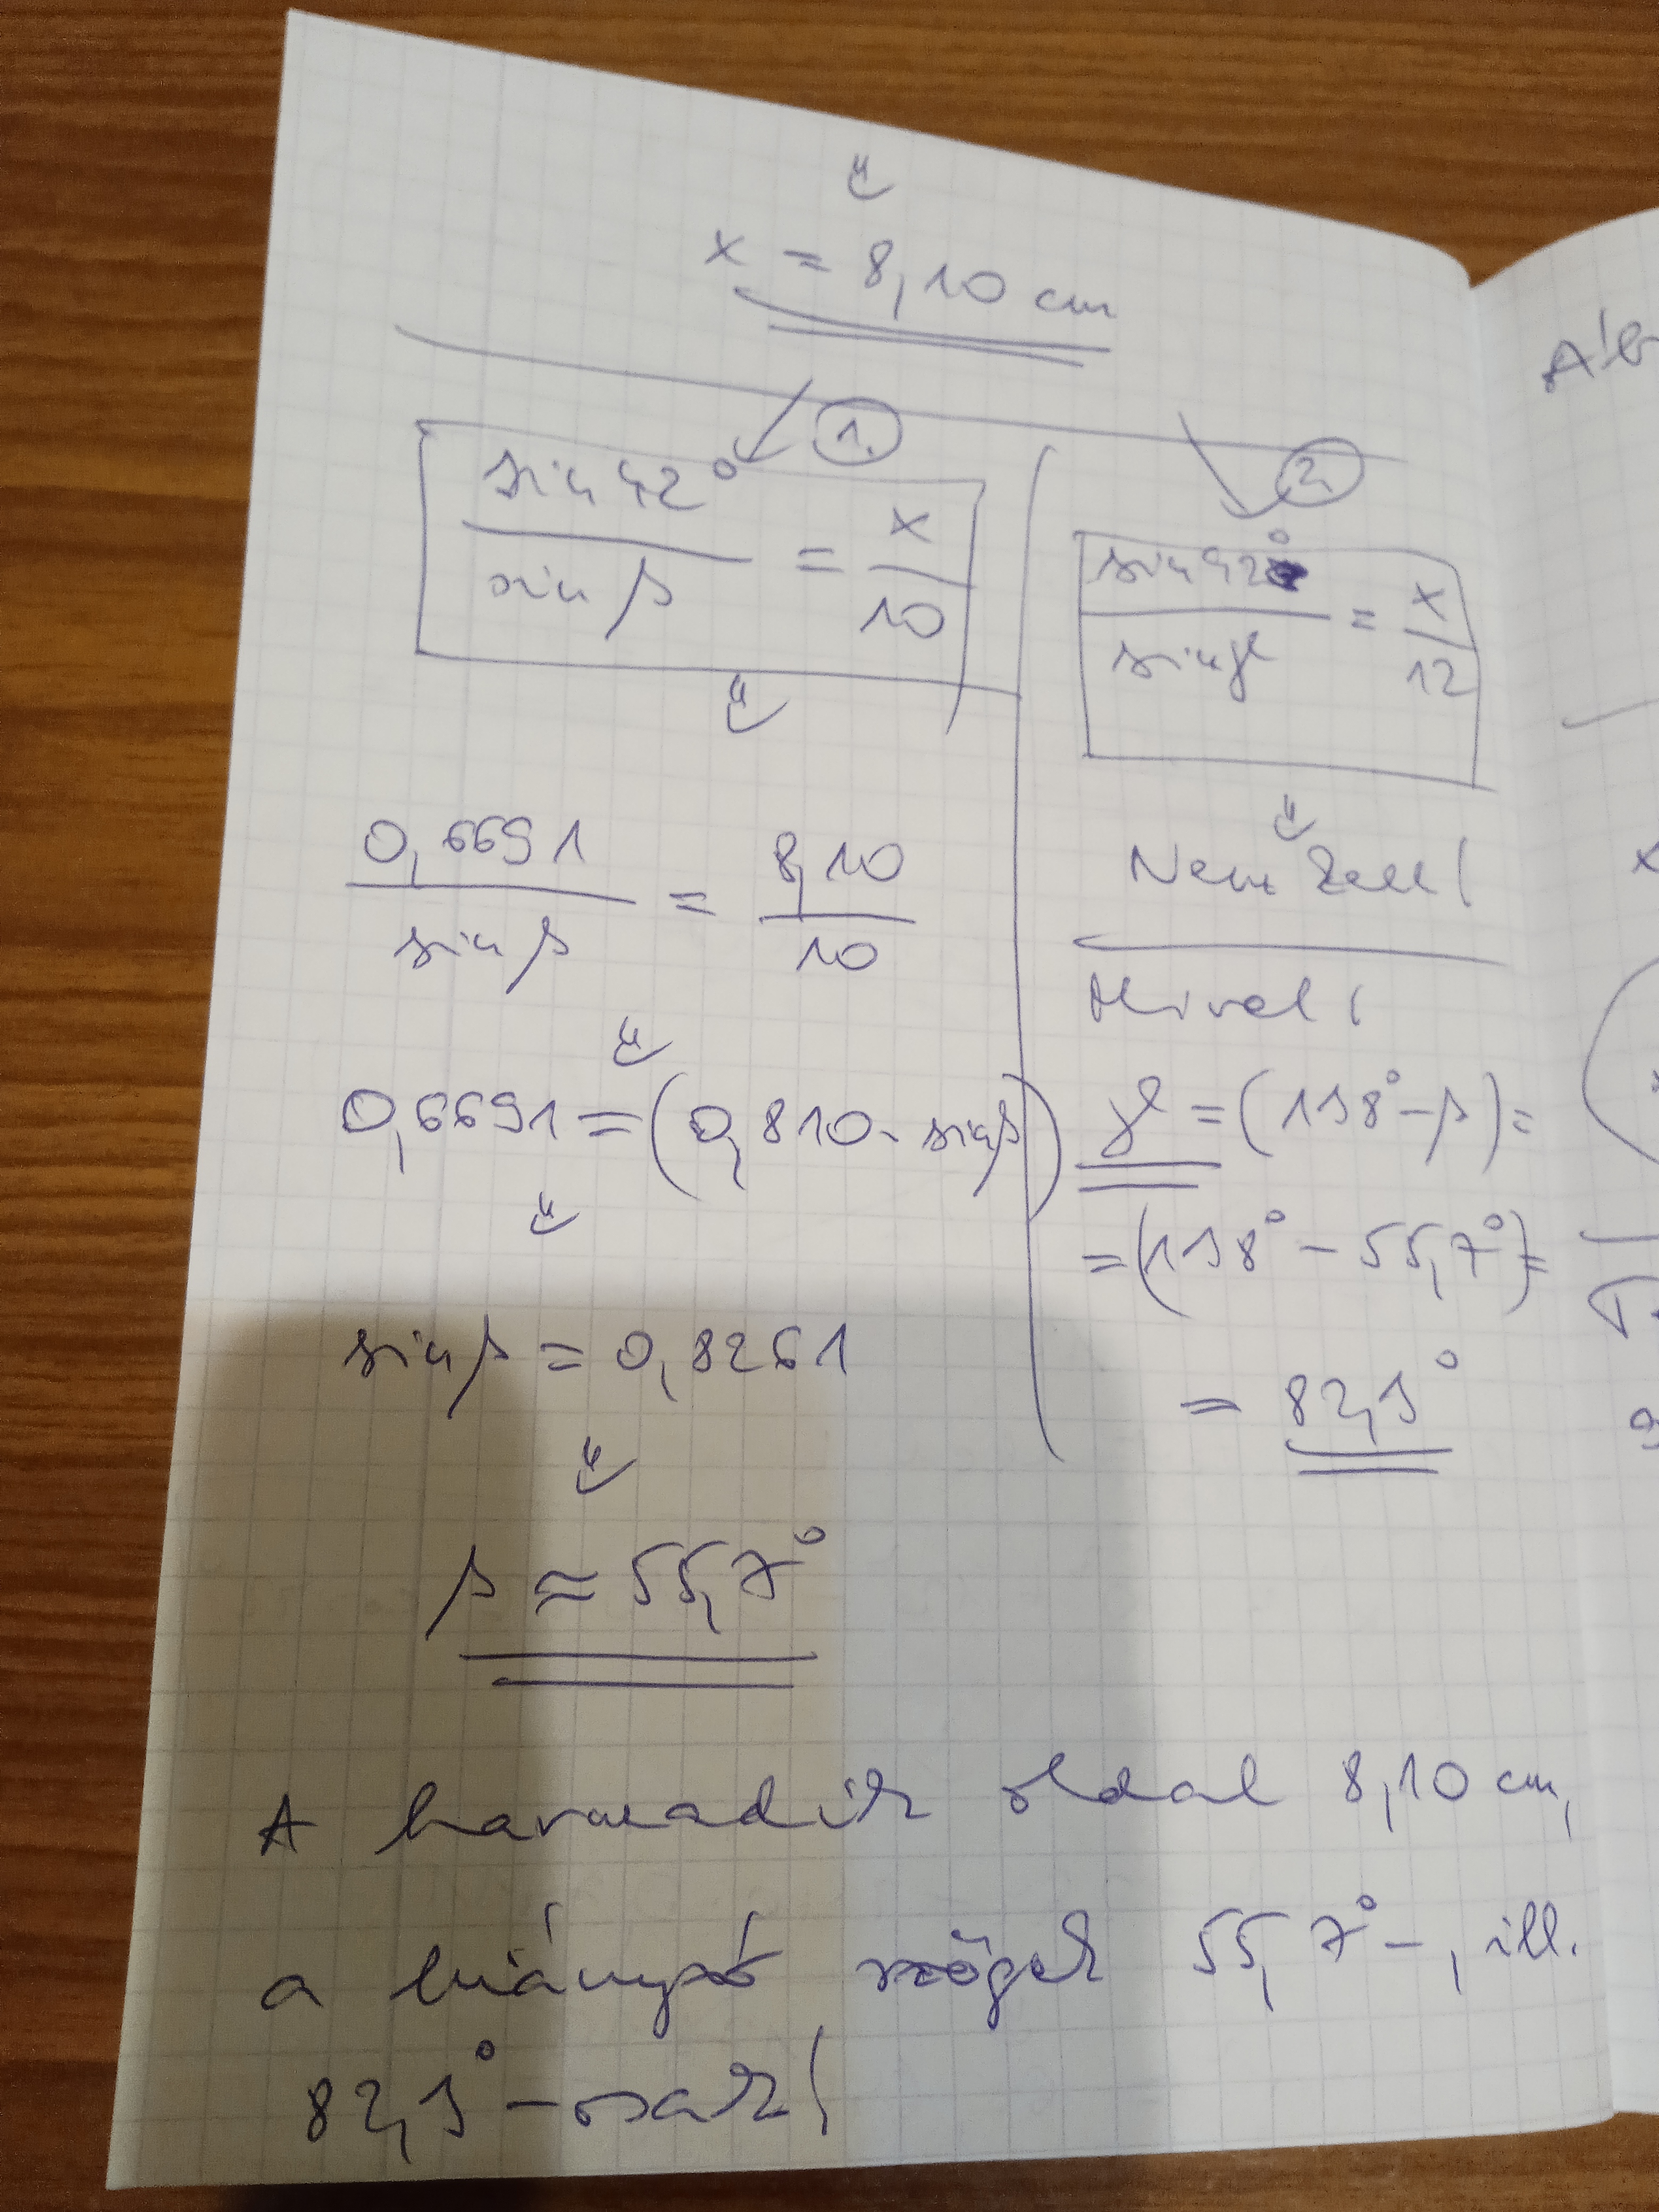 x = 8,10 cm
1.
sin 42° / sin β = x / 10
0,6691 / sin β = 8,10 / 10
0,6691 = (0,810 · sin β)
sin β = 0,8261
β ≈ 55,7°
2.
sin 42° / sin γ = x / 12
Nem kell!
Mivel:
γ = (138° - β) =
= (138° - 55,7°) =
= 82,3°
A harmadik oldal 8,10 cm,
a hiányzó szögek 55,7°-, ill.
82,3°-osak!